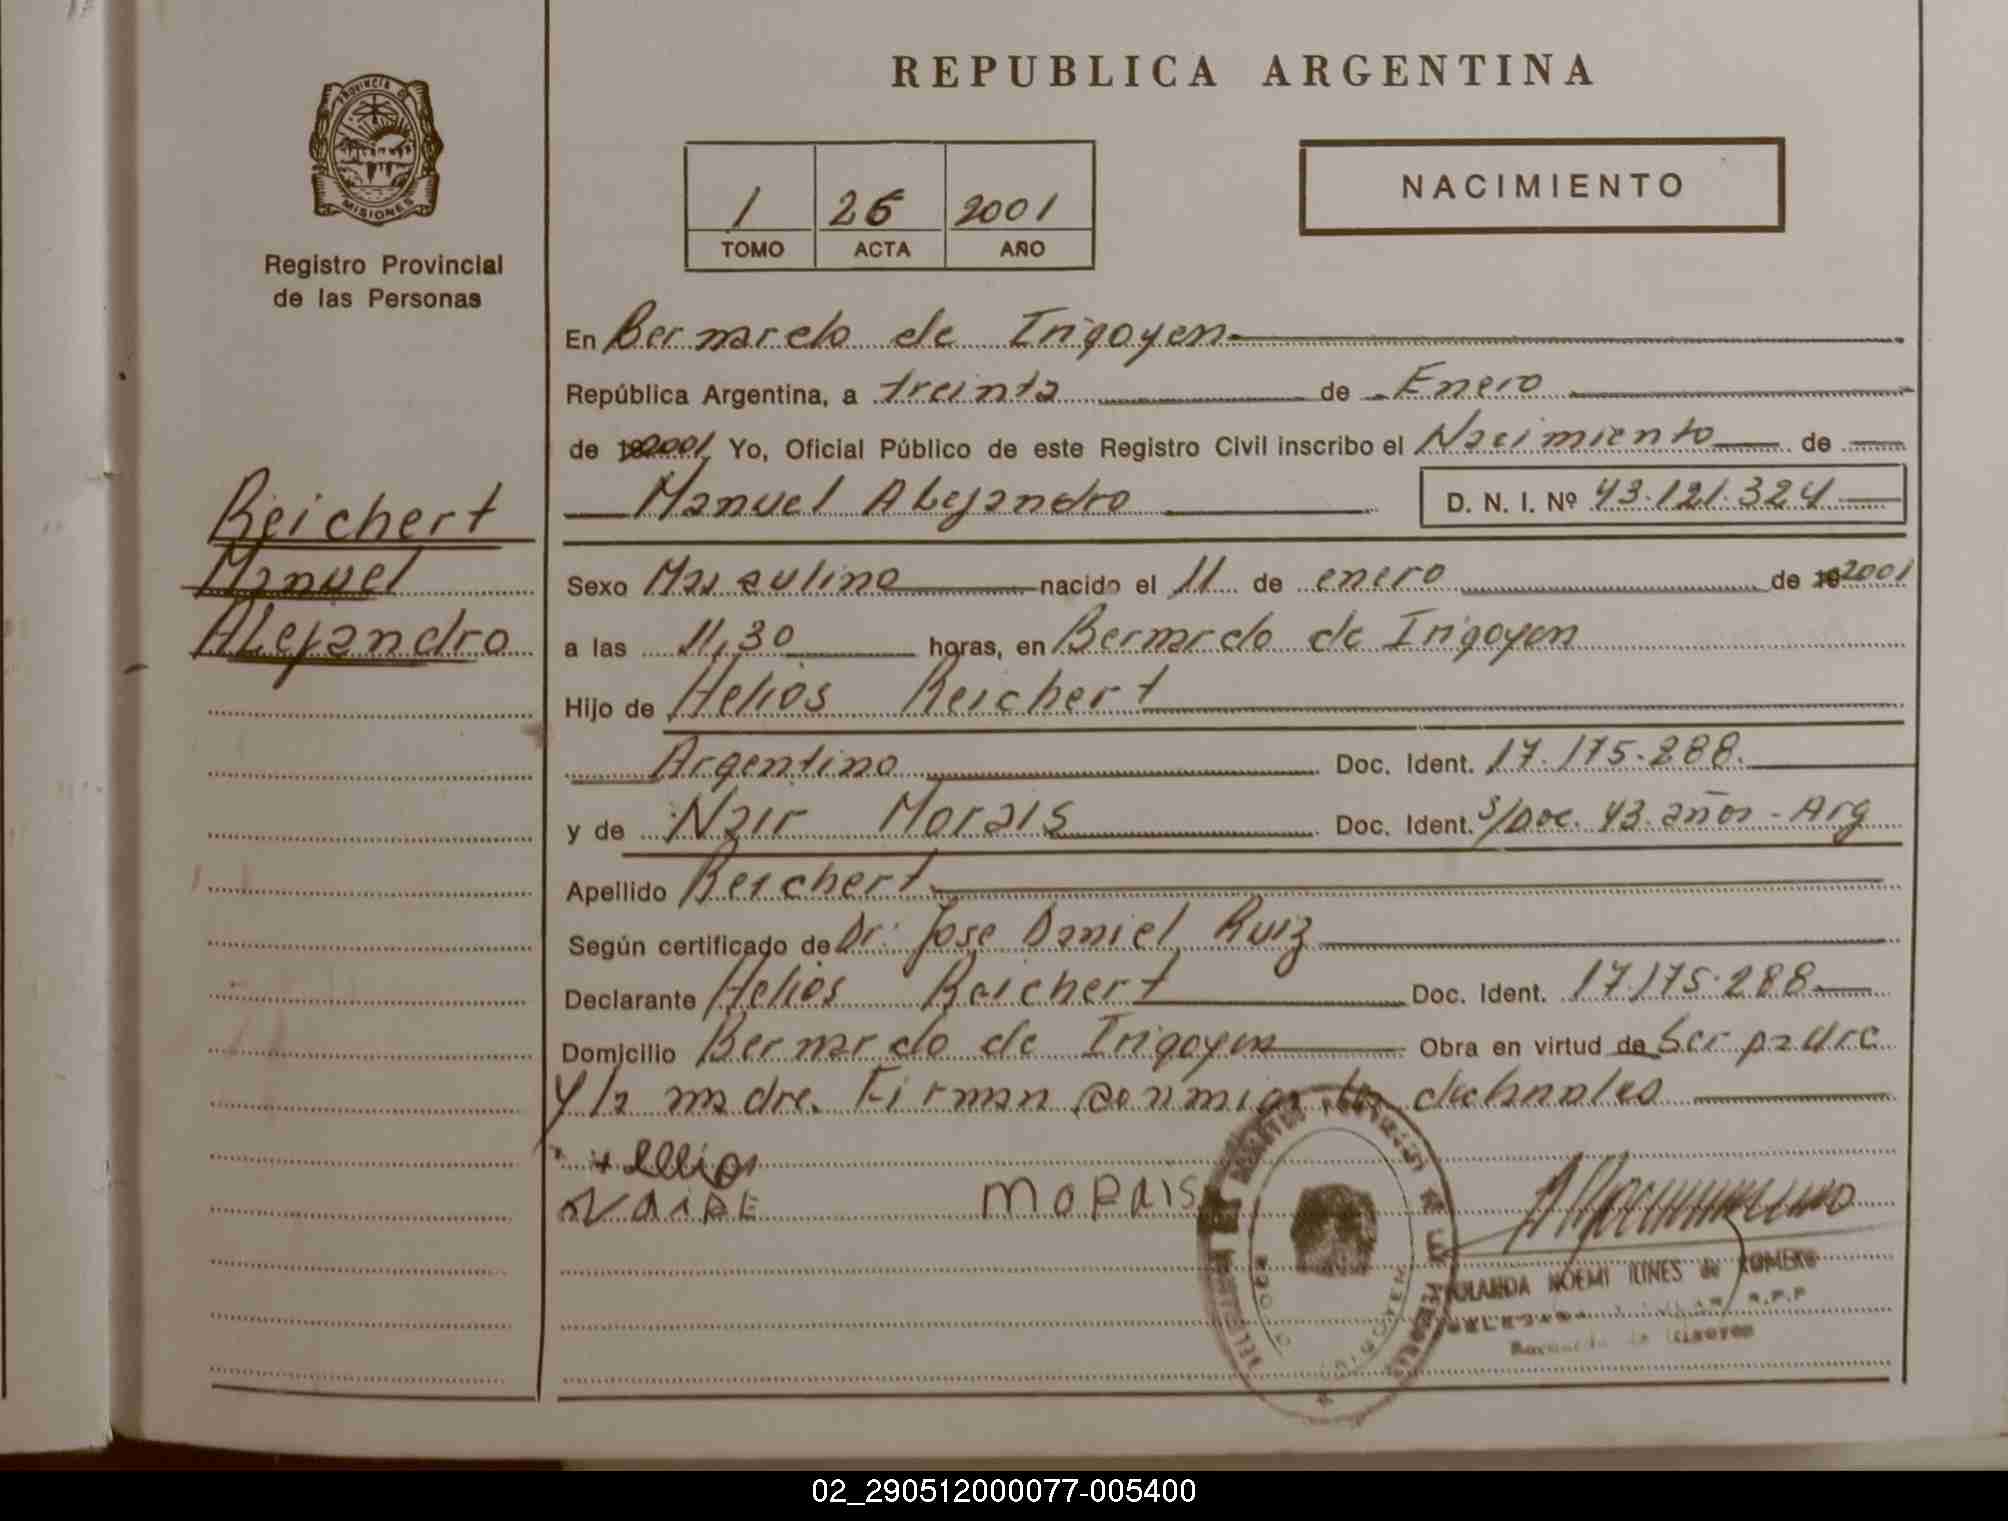 REPUBLICA ARGENTINA
PROVINCIA DE
MISIONES
Registro Provincial
de las Personas
1 26 2001
TOMO ACTA AÑO
NACIMIENTO
En Bernardo de Irigoyen
República Argentina, a treinta de Enero
de 2001 Yo, Oficial Público de este Registro Civil inscribo el Nacimiento de
Manuel Alejandro D. N. I. Nº 43.121.324
Reichert
Manuel
Alejandro
Sexo Masculino nacido el 11 de enero de 2001
a las 11,30 horas, en Bernardo de Irigoyen
Hijo de Helios Reichert
Argentino Doc. Ident. 17.175.288.
y de Nair Morais Doc. Ident. S/Doc. 43 años - Arg
Apellido Reichert
Según certificado de Dr. Jose Daniel Ruiz
Declarante Helios Reichert Doc. Ident. 17.175.288
Domicilio Bernardo de Irigoyen Obra en virtud de Ser padre
y la madre. Firman conmigo
NAIRE MORAIS
NOEMI de ROMERO
R.P.P
02_290512000077-005400